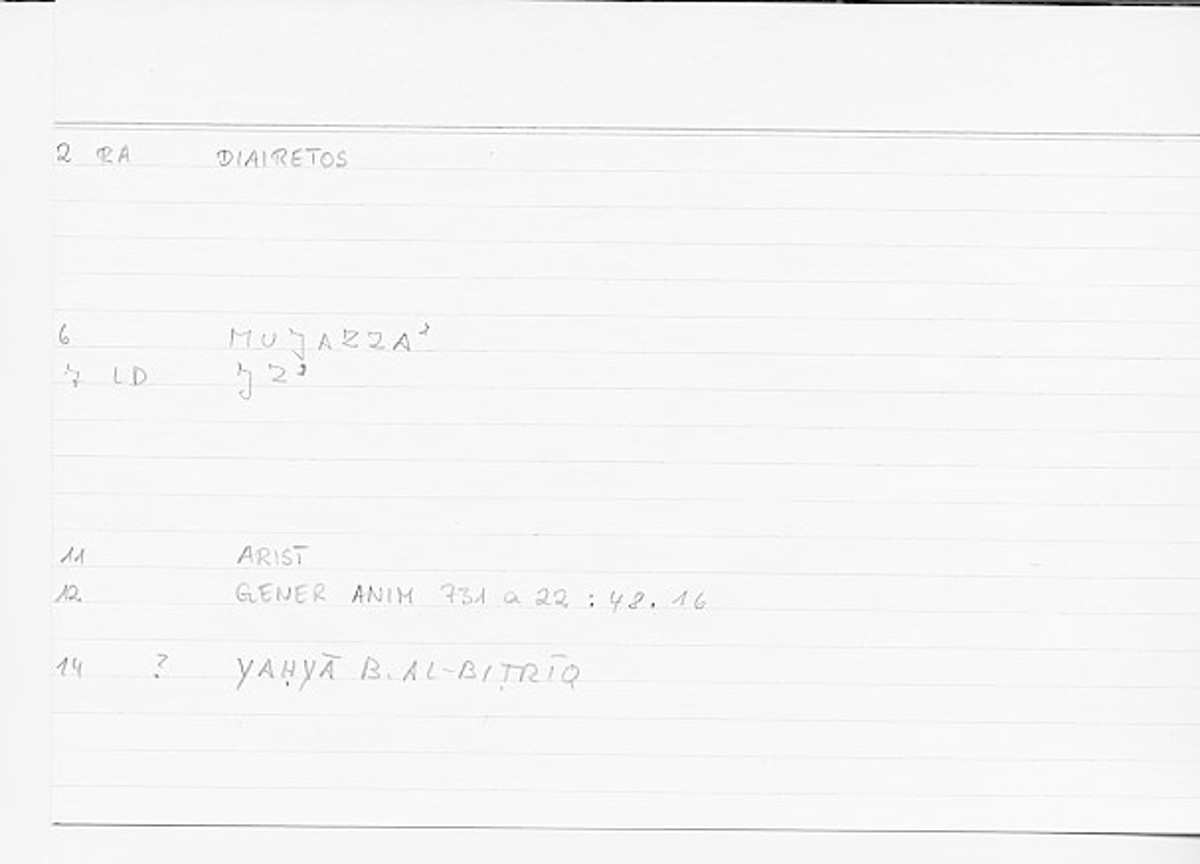 2 RA DIAIRETOS
6 MUJAZZAʾ
7 LD JZʾ
11 ARIST
12 GENER ANIM 731 a 22 : 48. 16
14 ? YAḤYĀ B. AL-BIṬRĪQ